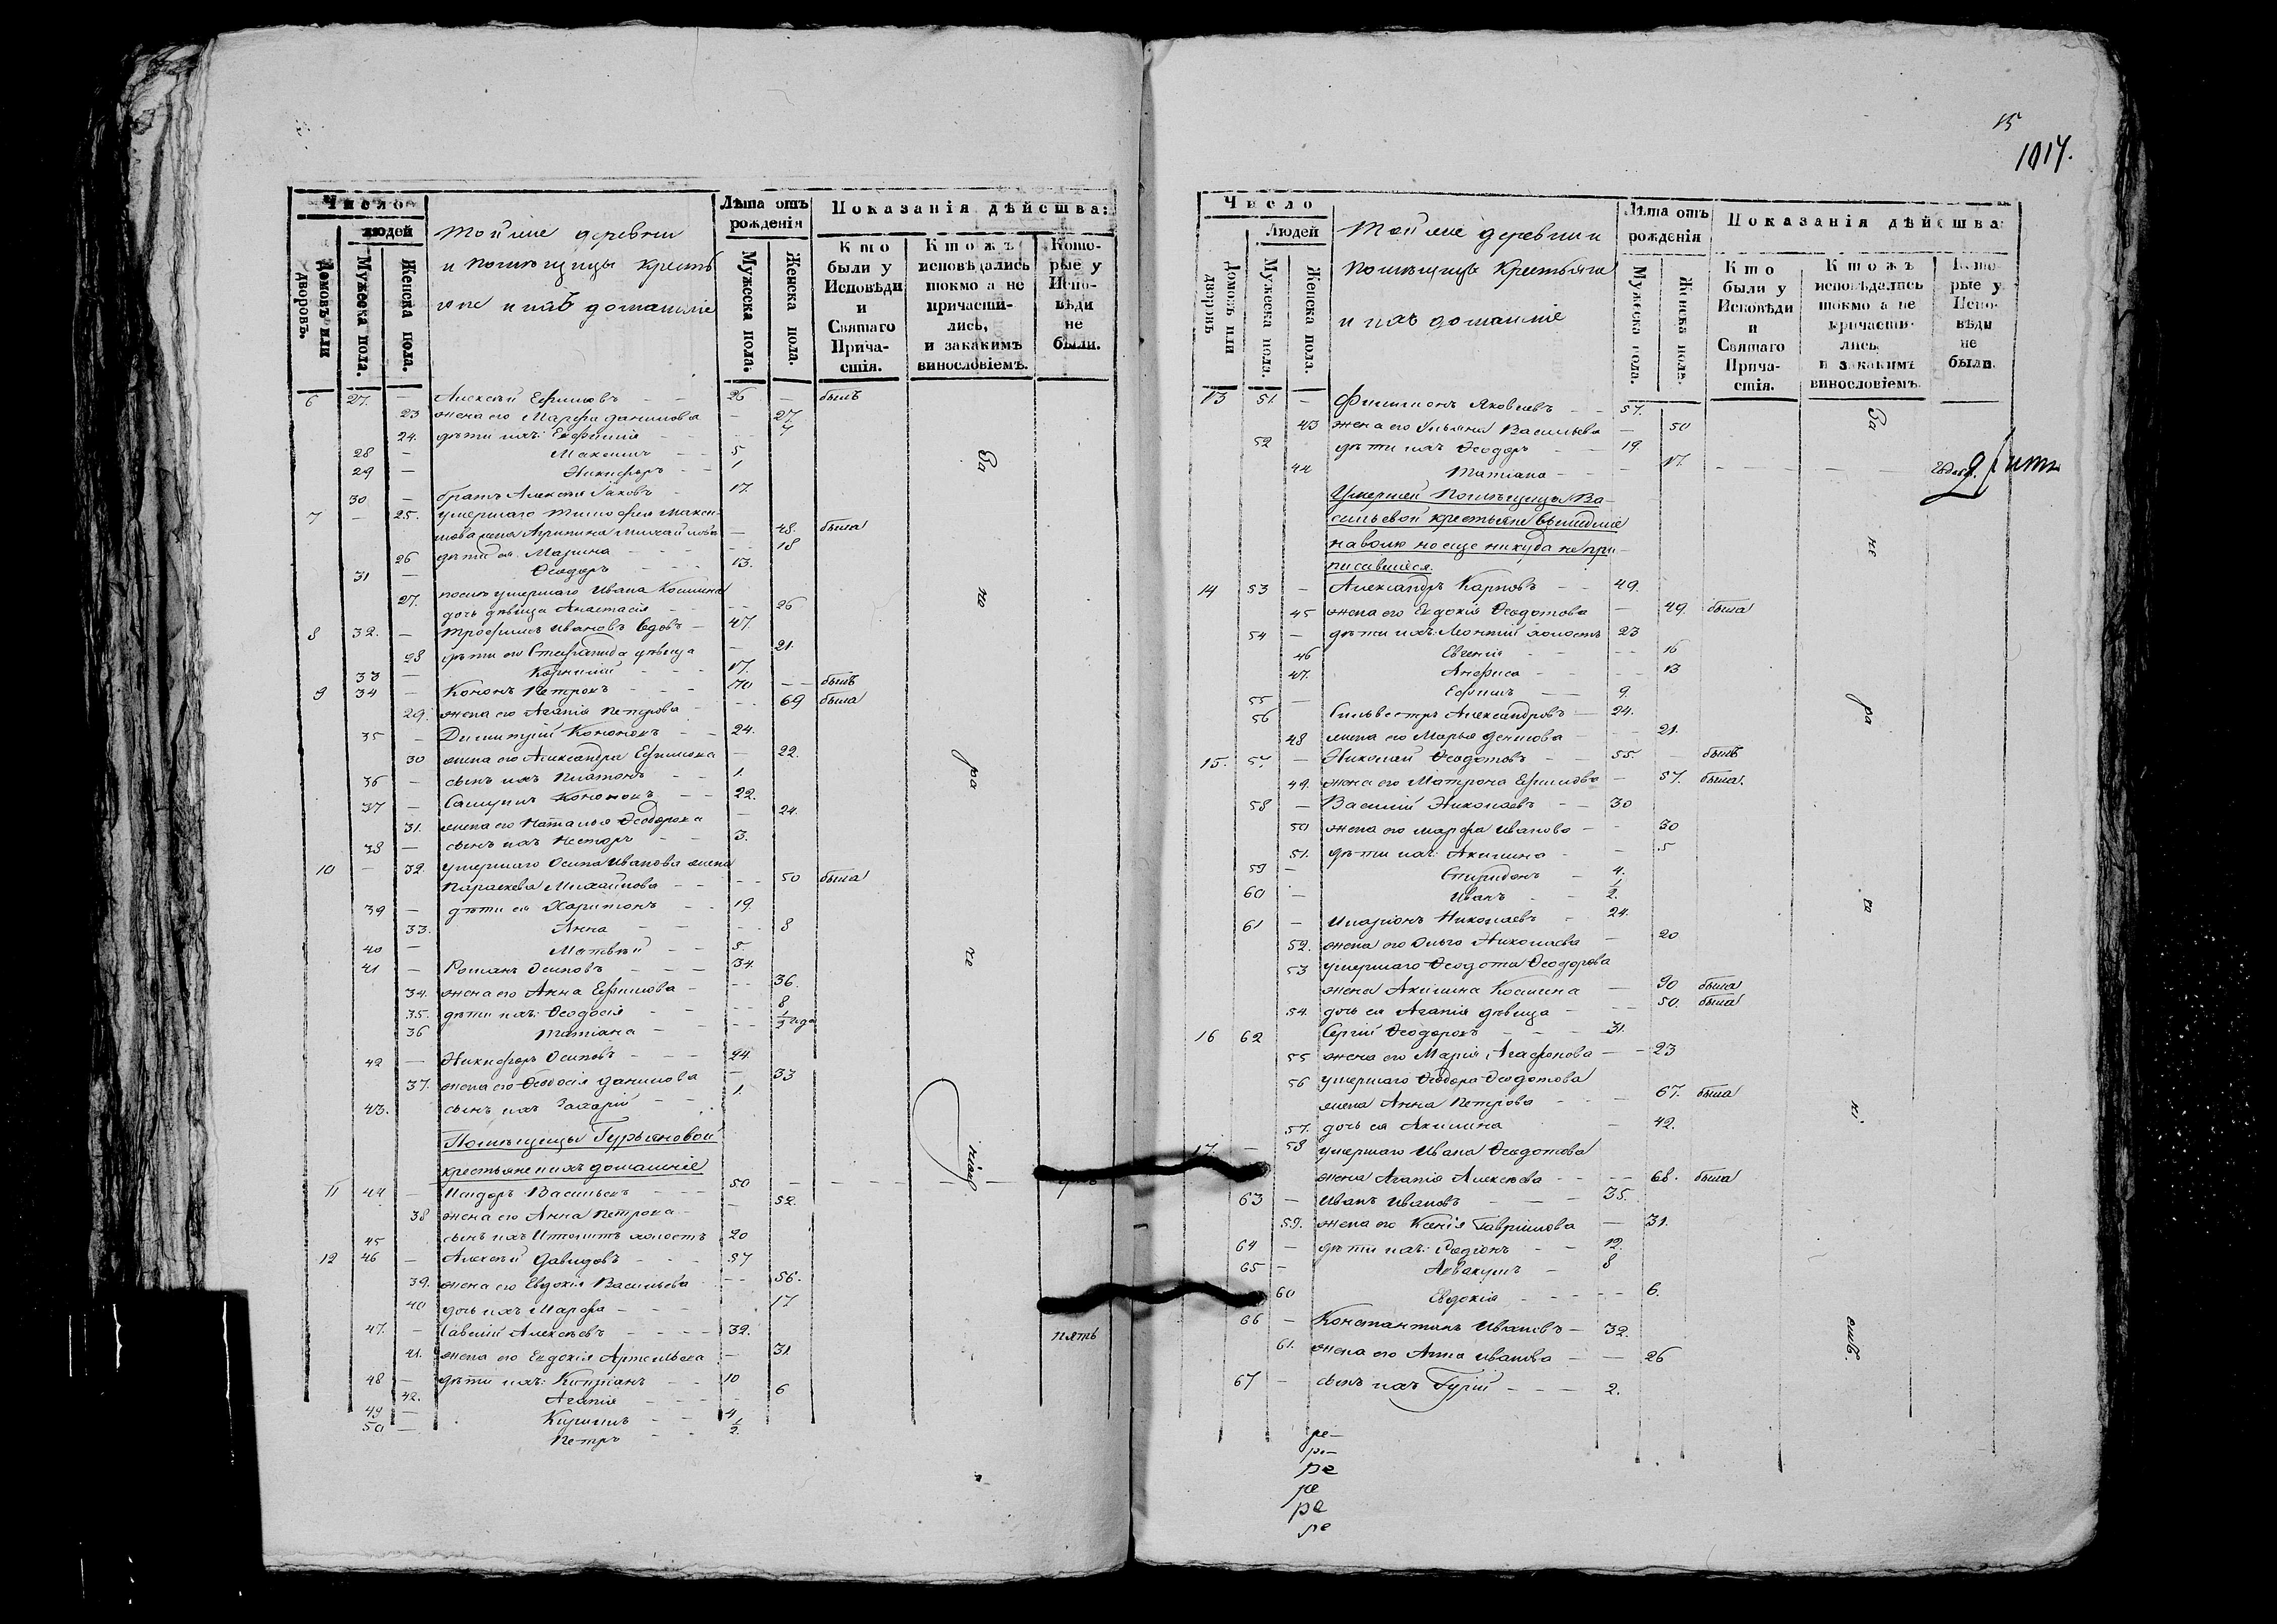 Число
людей
Домовъ или дворовъ.
Мужеска пола.
Женска пола.
Тойжие деревни
и помѣщицы крестья
яне и ихъ домашніе
Лѣта отъ рожденія
Мужеска пола.
Женска пола.
Показанія дѣйства:
Кто были у Исповѣди и Святаго Причастія.
Ктожъ исповѣдались токмо а не причастились, и закакимъ винословіемъ.
Которые у Исповѣди не были.
6 27. — Алексѣй Ефимовъ — — 26 — былъ
23 жена его Марфа Данилова — 27
24. дѣти ихъ: Евфимія — — 7
28 — Максимъ — — 5
29 — Никифоръ — — 1
30 — братъ Алексѣя Іаковъ — 17.
7 — 25. умершаго Тимофея Макси
мова жена Агрипина Михайлова — 48. была
26 дѣти ея Марина — — 18
31 — Ѳеодоръ — — 13.
27. послѣ умершаго Ивана Космина
дочь дѣвица Анастасія — — 26
8 32. — Трофимъ Ивановъ вдовъ — 47.
28 дѣти его Стефанида дѣвица — 21.
33 — Корнилій — — 17.
9 34 — Кононъ Петровъ — — 70 — — былъ
29. жена его Агапія Петрова — — 69 была
35 — Димитрій Кононовъ — — 24.
30 жена его Александра Ефимова — 22.
36 — сынъ ихъ Платонъ — — 1.
37 — Самуилъ Кононовъ — — 22.
31. жена его Наталья Ѳеодорова — 24.
38 — сынъ ихъ Несторъ — — 3.
10 — 32. умершаго Осипа Иванова жена
Параскева Михайлова — — — 50 была
39 — дѣти ея Харитонъ — — 19.
33. Анна — — — 8
40 — Матвѣй — — 5.
41 — Романъ Осиповъ — — — 34.
34. жена его Анна Ефимова — — 36.
35. дѣти ихъ: Ѳеодосія — — 8
36 Татіана — — — 1/2 года
42 — Никифоръ Осиповъ — — — 24.
37. жена его Ѳеодосія Данилова — 33
43. сынъ ихъ Захарій — — 1.
Помѣщицы Гурьяновой
крестьяне и ихъ домашніе
11 44 — Исидоръ Васильевъ — — — 50 — — — — —
38 жена его Анна Петрова — — 52.
45 сынъ ихъ Иполитъ холостъ 20
12 46 — Алексѣй Давидовъ — — — 57
39. жена его Евдокія Васильева — — 56.
40 дочь ихъ Марфа — — — 17
47. — Савелій Алексѣевъ — — — — 32. пять
41. жена его Евдокія Артемьева — 31
48 — дѣти ихъ: Кипріанъ — — 10
42. Агапія — — — 6
49 — Кирилъ — — 4
50 — Петръ — — 1/2.
За не ра че ніем
15
1017.
Число
Людей
Домовъ или дворовъ
Мужеска пола.
Женска пола.
Тойжие деревни и
помѣщицы Крестьяне
и ихъ домашніе
Лѣта отъ рожденія
Мужеска пола.
Женска пола.
Показанія дѣйства
Кто были у Исповѣди и Святаго Причастія.
Ктожъ исповѣдались токмо а не причастились, и закакимъ винословіемъ.
Которые у Исповѣди не были.
13 51. — Филимонъ Яковлевъ — — 57.
43 жена его Ульяна Васильева — 50
52 дѣти ихъ Ѳеодоръ — — 19.
44 Татіана — — — 17. — — — —
Умершей Помѣщицы Ва-
сильевой крестьяне вышедшіе
на волю но еще никуда не при-
писавшіеся.
14 53 — Александръ Карповъ — — 49.
45 жена его Евдокія Ѳеодотова — 49. была
54 — дѣти ихъ: Леонтій холостъ 23
46 Евгенія — — — 16
47. Анфиса — — — 13
55 — Ефимъ — — 9.
56 Сильвестръ Александровъ — 24.
48 жена его Марья Денисова — — 21.
15. 57. — Николай Ѳеодотовъ — — 55. — былъ
49. жена его Матрона Ефимова — 57. была.
58 — Василій Николаевъ — — 30
50 жена его Марфа Иванова — — 30
51. дѣти ихъ: Акилина — — 5
59 — Спиридонъ — 4.
60 — Иванъ — — 1/2.
61 — Иларіонъ Николаевъ — 24.
52. жена его Ольга Николаева — 20
53 умершаго Ѳеодота Ѳеодорова
жена Акилина Космина — 90 была
54. дочь ея Агапія дѣвица — — 50. была
16 62 Сергій Ѳеодоровъ — — — 31.
55 жена его Марія Агафонова — — 23
56 умершаго Ѳеодора Ѳеодотова
жена Анна Петрова — — 67. была
57. дочь ея Акилина — 42.
17. — 58 умершаго Ивана Ѳеодотова
жена Агапія Алексѣева — — — 68. была
63 — Иванъ Ивановъ — — — 35.
59. жена его Ксенія Гаврилова — 31.
64 — дѣти ихъ: Родіонъ — — 12.
65 — Аввакумъ — 8
60 Евдокія — — — — 6.
66 — Константинъ Ивановъ — 32.
61. жена его Анна Иванова — — 26
67 — сынъ ихъ Гурій — — — 2.
За не ра че ні емъ.
ре—
ре—
ре
ре
ре
ре